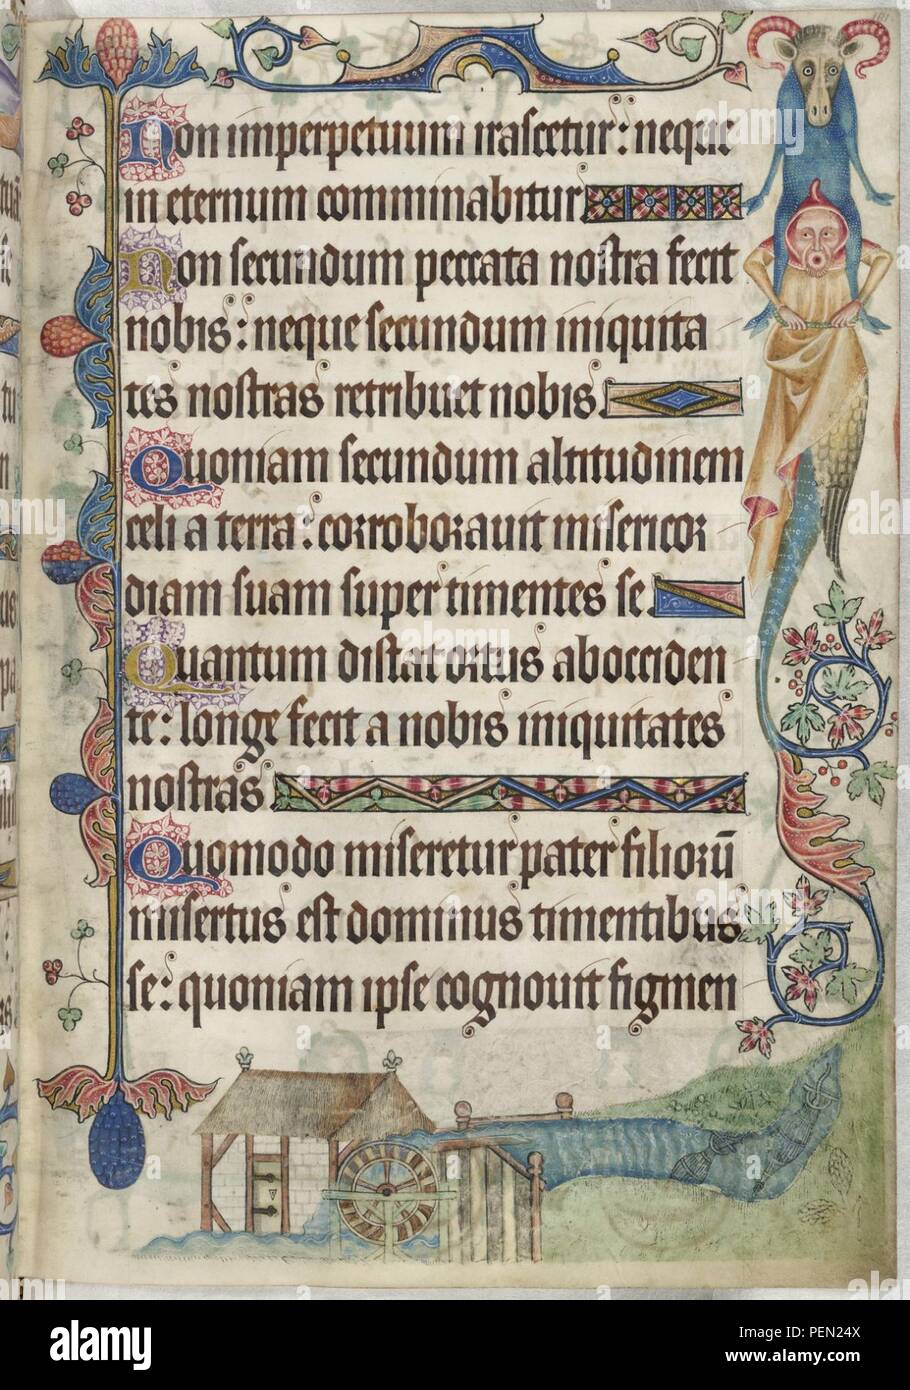 Non imperpetuum irascetur: neque
in eternum comminabitur
Non secundum peccata nostra fecit
nobis: neque secundum iniquita
tes nostras retribuet nobis
Quoniam secundum altitudinem
celi a terra: corroborauit misericor
diam suam super timentes se
Quantum distat ortus ab occiden
te: longe fecit a nobis iniquitates
nostras
Quomodo miseretur pater filiorū
misertus est dominus timentibus
se: quoniam ipse cognouit figmen
alamy
Image ID: PEN24X
www.alamy.com